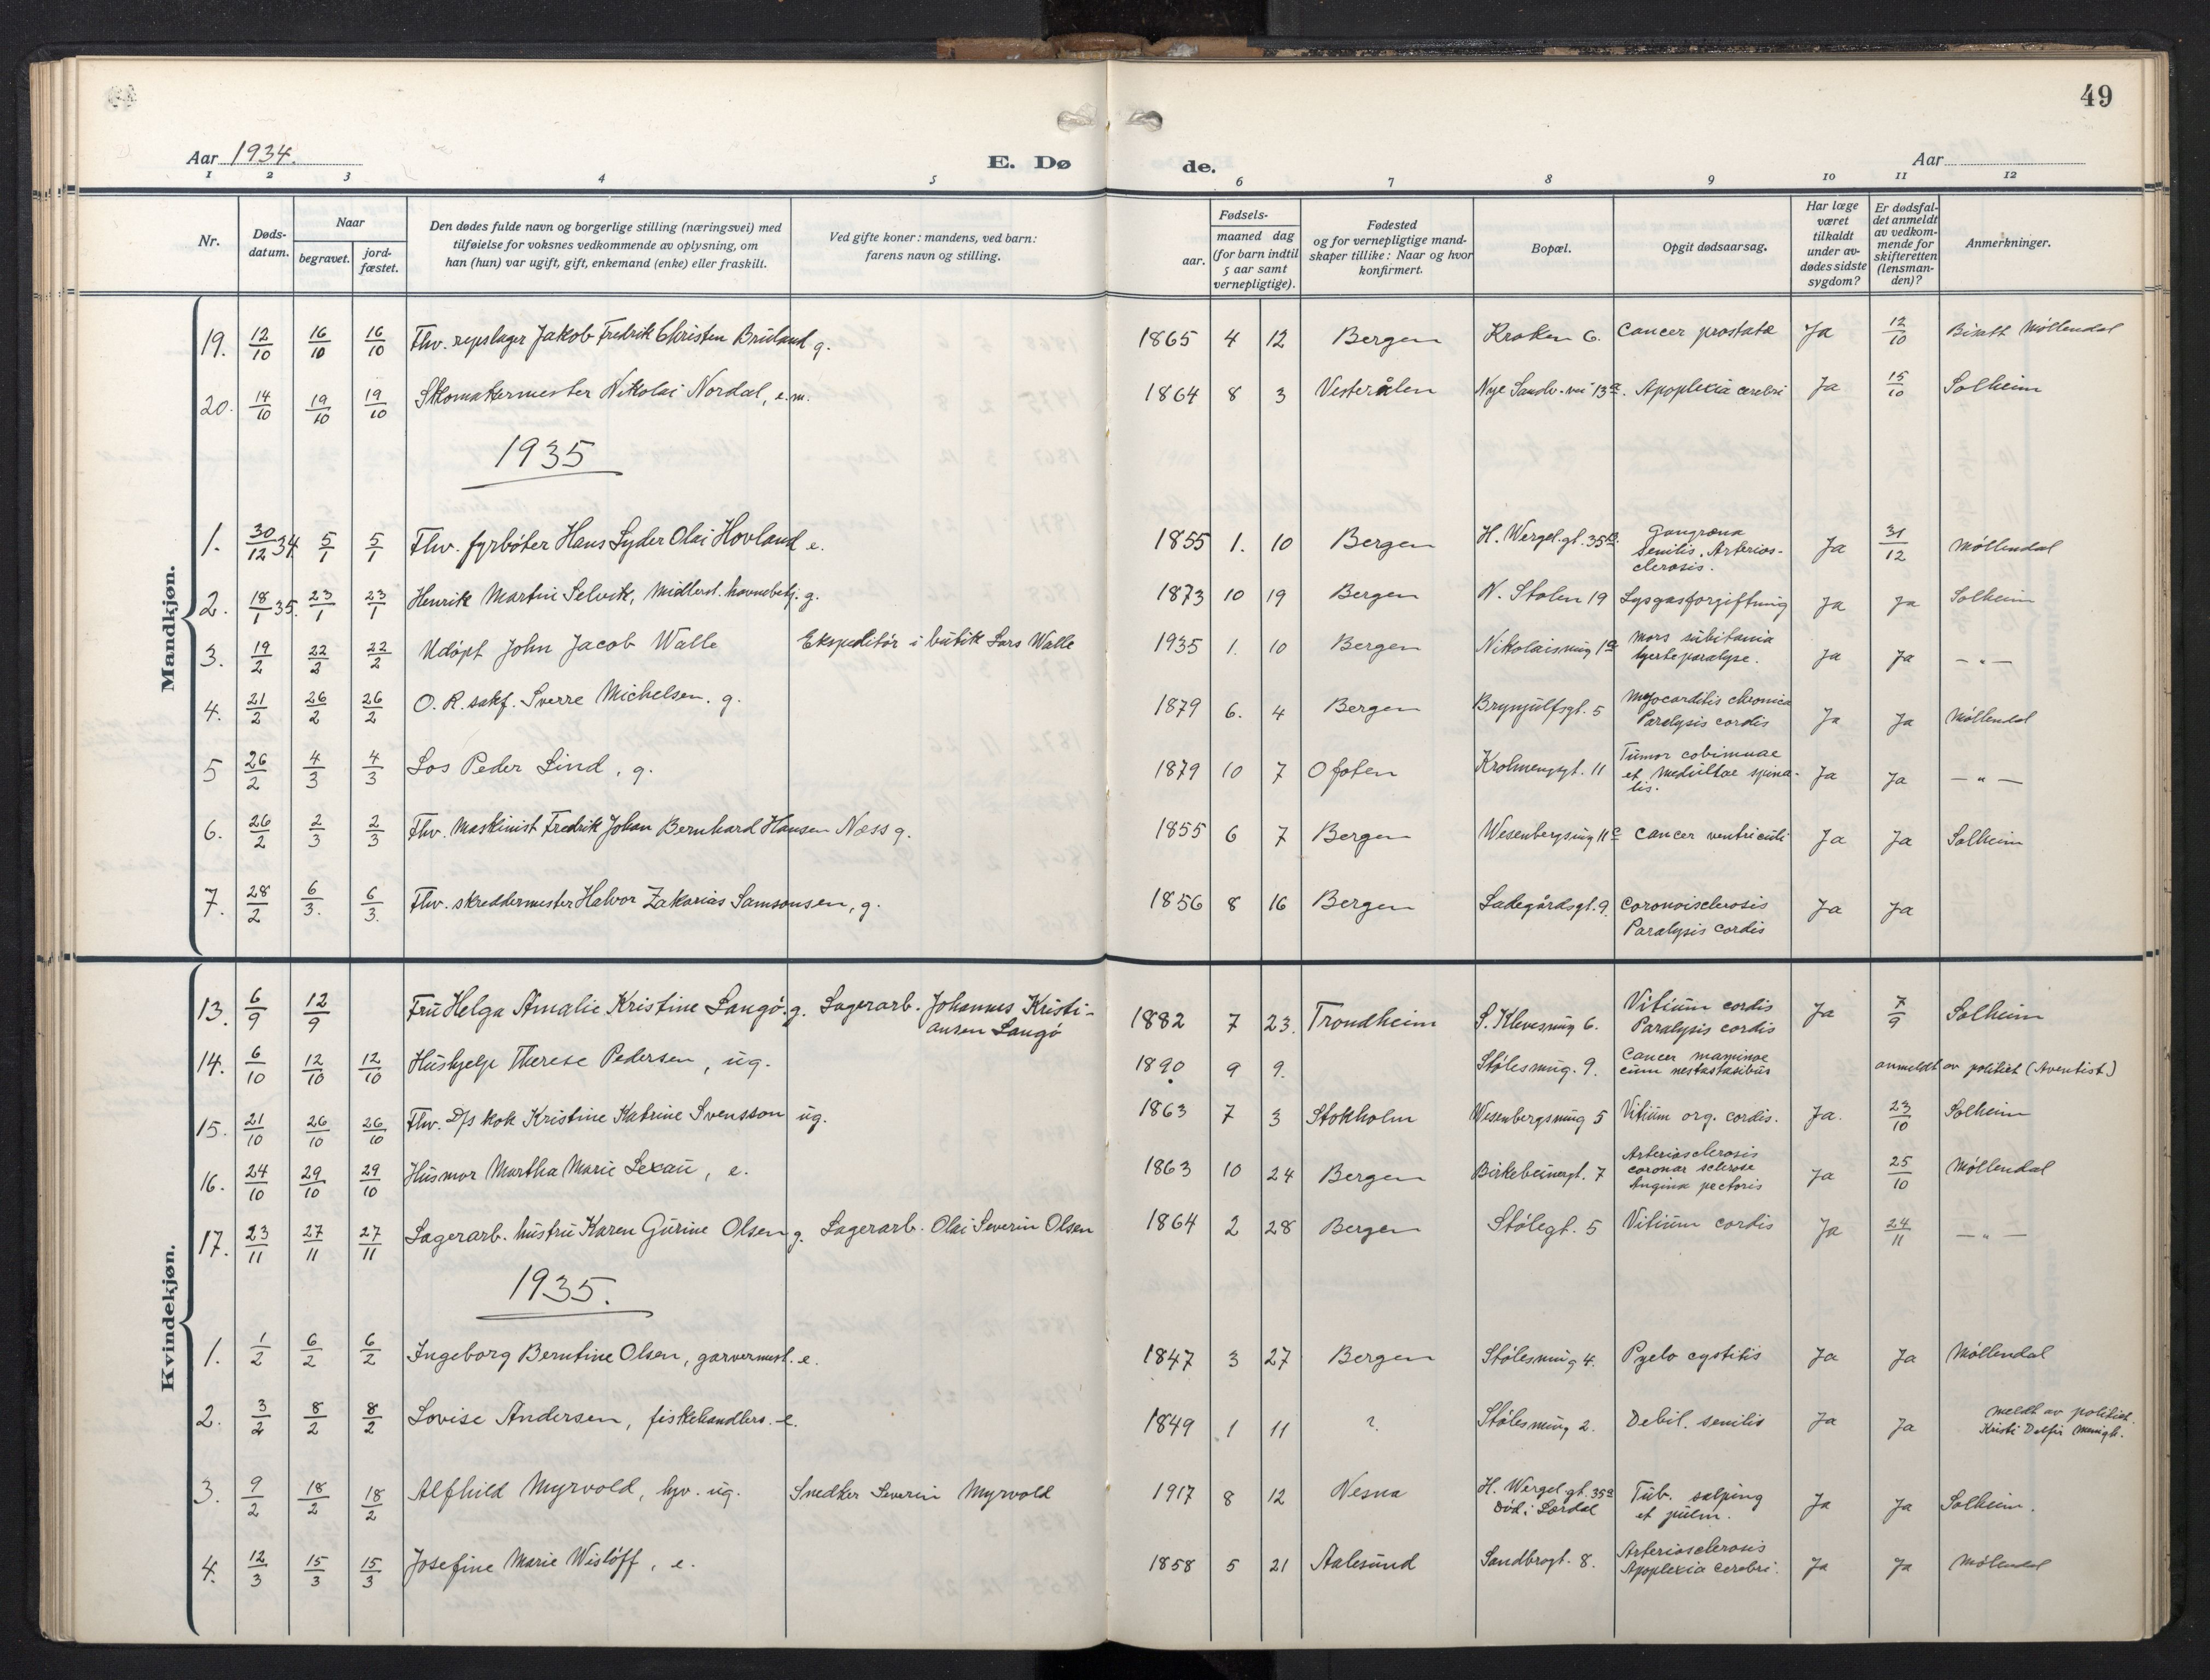 49
Aar 1934.
E. Døde.
Aar
1 2 3 4 5 6 7 8 9 10 11 12
Nr.
Døds-
datum.
Naar
begravet.
jord-
fæstet.
Den dødes fulde navn og borgerlige stilling (næringsvei) med
tilføielse for voksnes vedkommende av oplysning, om
han (hun) var ugift, gift, enkemand (enke) eller fraskilt.
Ved gifte koner: mandens, ved barn:
farens navn og stilling.
Fødsels-
aar.
maaned dag
(for barn indtil
5 aar samt
vernepligtige).
Fødested
og for vernepligtige mand-
skaper tillike: Naar og hvor
konfirmert.
Bopæl.
Opgit dødsaarsag.
Har læge
været
tilkaldt
under av-
dødes sidste
sygdom?
Er dødsfal-
det anmeldt
av vedkom-
mende for
skifteretten
(lensman-
den)?
Anmerkninger.
Mandkjøn.
19. 12/10 16/10 16/10 Fhv. repslager Jakob Fredrik Christen Bruland g. 1865 4 12 Bergen Kroken 6. Cancer prostatæ Ja 12/10 Bisatt Møllendal
20. 14/10 19/10 19/10 Skomakermester Nikolai Nordal, e.m. 1864 8 3 Vesterålen Nye Sandv-vei 13a. Apoplexia cerebri Ja 15/10 Solheim
1935
1. 30/12 34. 5/1 5/1 Fhv. fyrbøter Hans Lyder Olai Hovland e. 1855 1. 10 Bergen H. Wergel.gt. 35a. Gangræna
senilis. Arterios-
clerosis. Ja 31/12 Møllendal
2. 18/1 35. 23/1 23/1 Henrik Martin Selvik, midlerd. havnebetj. g. 1873 10 19 Bergen N. Stølen 19 Lysgasforgiftning Ja Ja Solheim
3. 19/2 22/2 22/2 Udøpt John Jacob Walle Ekspeditør i butik Lars Walle 1935 1. 10 Bergen Nikolaismug 1a Mors subitania
hjerteparalyse. Ja Ja — " —
4. 21/2 26/2 26/2 O. R. sakf. Sverre Michelsen. g. 1879 6. 4 Bergen Brynjulfsgt. 5 Myocarditis chronica
Paralysis cordis Ja Ja Møllendal
5 26/2 4/3 4/3 Los Peder Lind, g. 1879 10 7 Ofoten Krohnengsgt. 11 Tumor
et medullae spina-
lis. Ja Ja — " —
6. 26/2 2/3 2/3 Fhv. Maskinist Fredrik Johan Bernhard Hansen Næss g. 1855 6 7 Bergen Wesenbergsmug 11c Cancer ventriculi Ja Ja Solheim
7. 28/2 6/3. 6/3. Fhv. skreddermester Halvor Zakarias Samsonsen, g. 1856 8 16 Bergen Ladegårdsgt. 9. Coronoisclerosis
Paralysis cordis Ja Ja
Kvindekjøn.
13. 6/9 12/9 Fru Helga Amalie Kristine Langø. g. Lagerarb. Johannes Kristi-
ansen Langø 1882 7 23. Trondheim S. Klevesmug 6. Vitium cordis
Paralysis cordis Ja 7/9 Solheim
14. 6/10 12/10 12/10 Hushjelp Therese Pedersen, ug. 1890 9 9. Stølesmug. 9. Cancer mammae
cum mestastasibus anmeldt av politiet (Aventist)
15. 21/10 26/10 26/10 Fhv. D/s kok Kristine Katrine Svensson ug. 1863 7 3 Stokholm Wesenbergsmug 5 Vitium org. cordis. Ja. 23/10 Solheim
16. 24/10 29/10 29/10 Husmor Martha Marie Lexau, e. 1863 10 24 Bergen Birkebeinergt. 7 Arteriosclerosis
coronar sclerose
Angina pectoris Ja 25/10 Møllendal
17. 23/11 27/11 27/11 Lagerarb. hustru Karen Gurine Olsen g. Lagerarb. Olai Severin Olsen 1864 2 28 Bergen Stølegt. 5 Vitium cordis Ja 24/11 — " —
1935.
1. 1/2 6/2 6/2 Ingeborg Berntine Olsen, garvermest. e. 1847 3 27 Bergen Stølesmug 4. Pyelo cystitis Ja Ja Møllendal
2. 3/2 8/2 8/2 Lovise Andersen, fiskehandlers. e. 1849 1 11 ? Stølesmug 2. Debil. senilis Ja Ja meldt av politiet.
Kristi Delfin Menigh.
3. 9/2 18/2 18/2 Alfhild Myrvold, hjv. ug. Snedker Severin Myrvold 1917 8 12 Nesna H. Wergel.gt. 35a
død i Lærdal Tub. salping
et pulm. Ja Ja Solheim.
4. 12/3 15/3 15/3 Josefine Marie Wisløff, e. 1858 5 21 Aalesund Sandbrogt. 8. Arteriosclerosis
Apoplexia cerebri. Ja Ja Møllendal